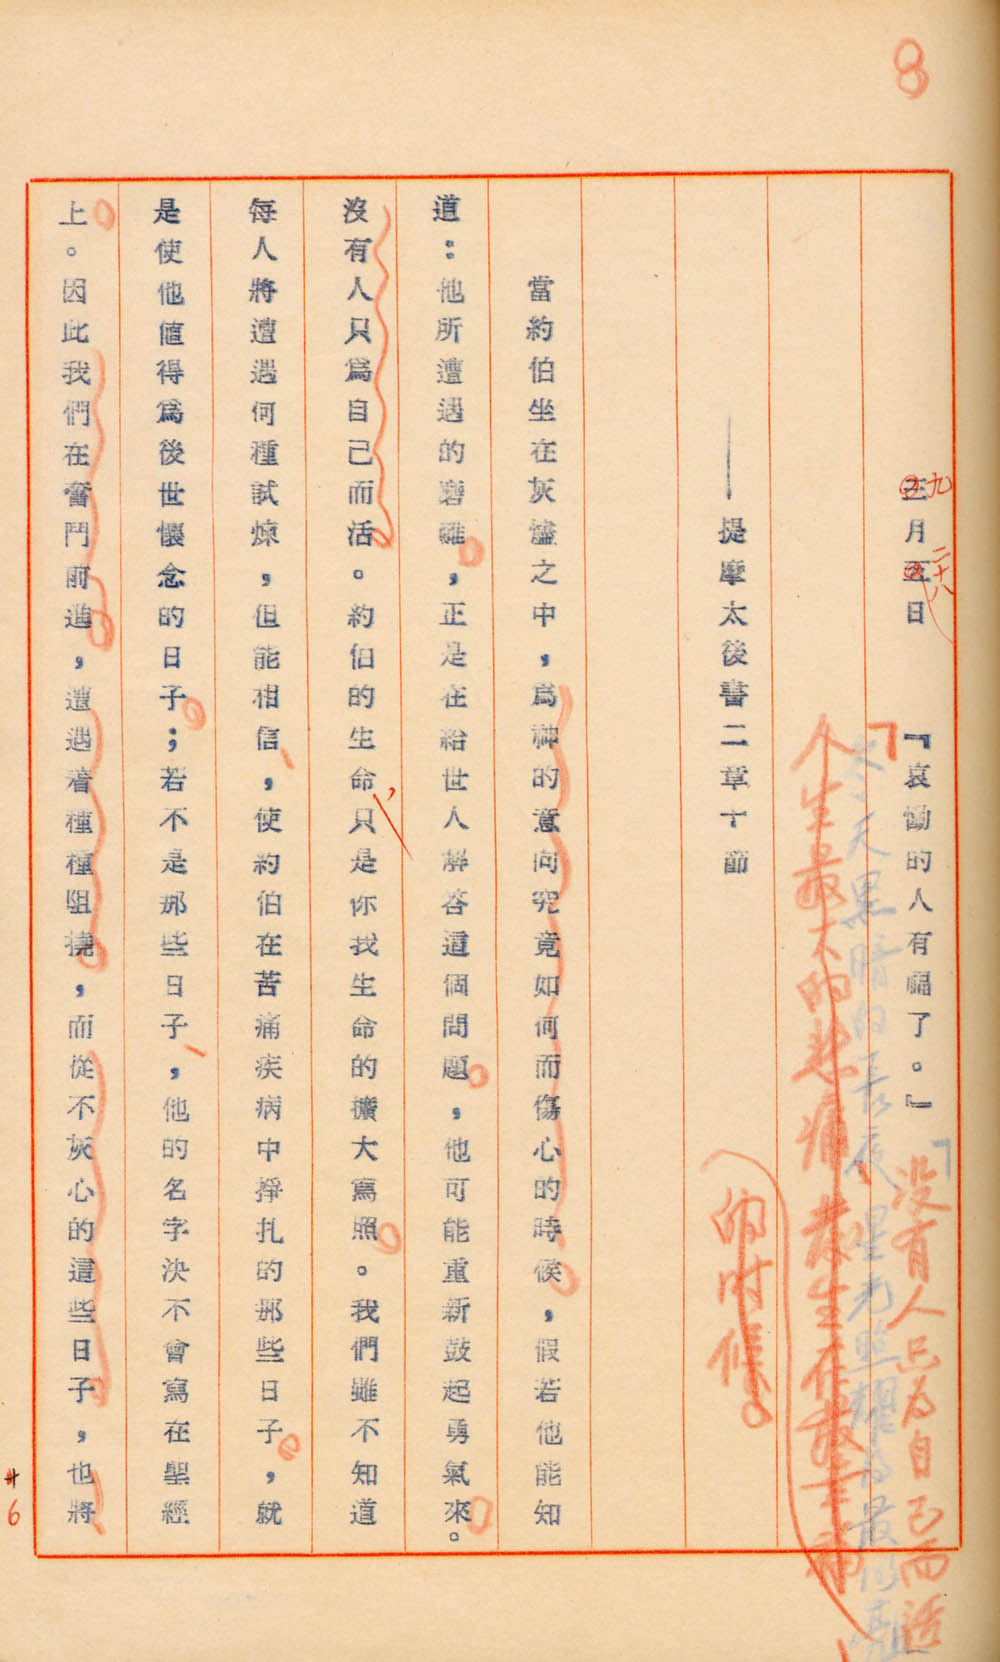 8
三月五日　『哀慟的人有福了。』
九
二十八
「沒有人只为自己而活
冬天黑暗的長夜星光照耀为最明亮
人生最大的悲痛
的时候。
——提摩太後書二章十節
當約伯坐在灰燼之中，爲神的意向究竟如何而傷心的時候，假若他能知
道：他所遭遇的磨難，正是在給世人解答這個問題，他可能重新鼓起勇氣來。
沒有人只爲自己而活。約伯的生命只是你我生命的擴大寫照。我們雖不知道
每人將遭遇何種試煉，但能相信，使約伯在苦痛疾病中掙扎的那些日子，就
是使他值得爲後世懷念的日子；若不是那些日子，他的名字決不會寫在聖經
上。因此我們在奮鬥前進，遭遇著種種阻撓，而從不灰心的這些日子，也將
6